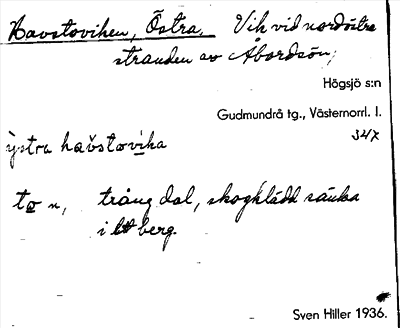 Havstovihen, Östra. Vik vid nordöstra
stranden av Åbordsön;
Högsjö s:n
Gudmundrå tg., Västernorrl. l.
347
ȳstra havstoviha
to n, trång dal, skogklädd sänka
i ett berg.
Sven Hiller 1936.